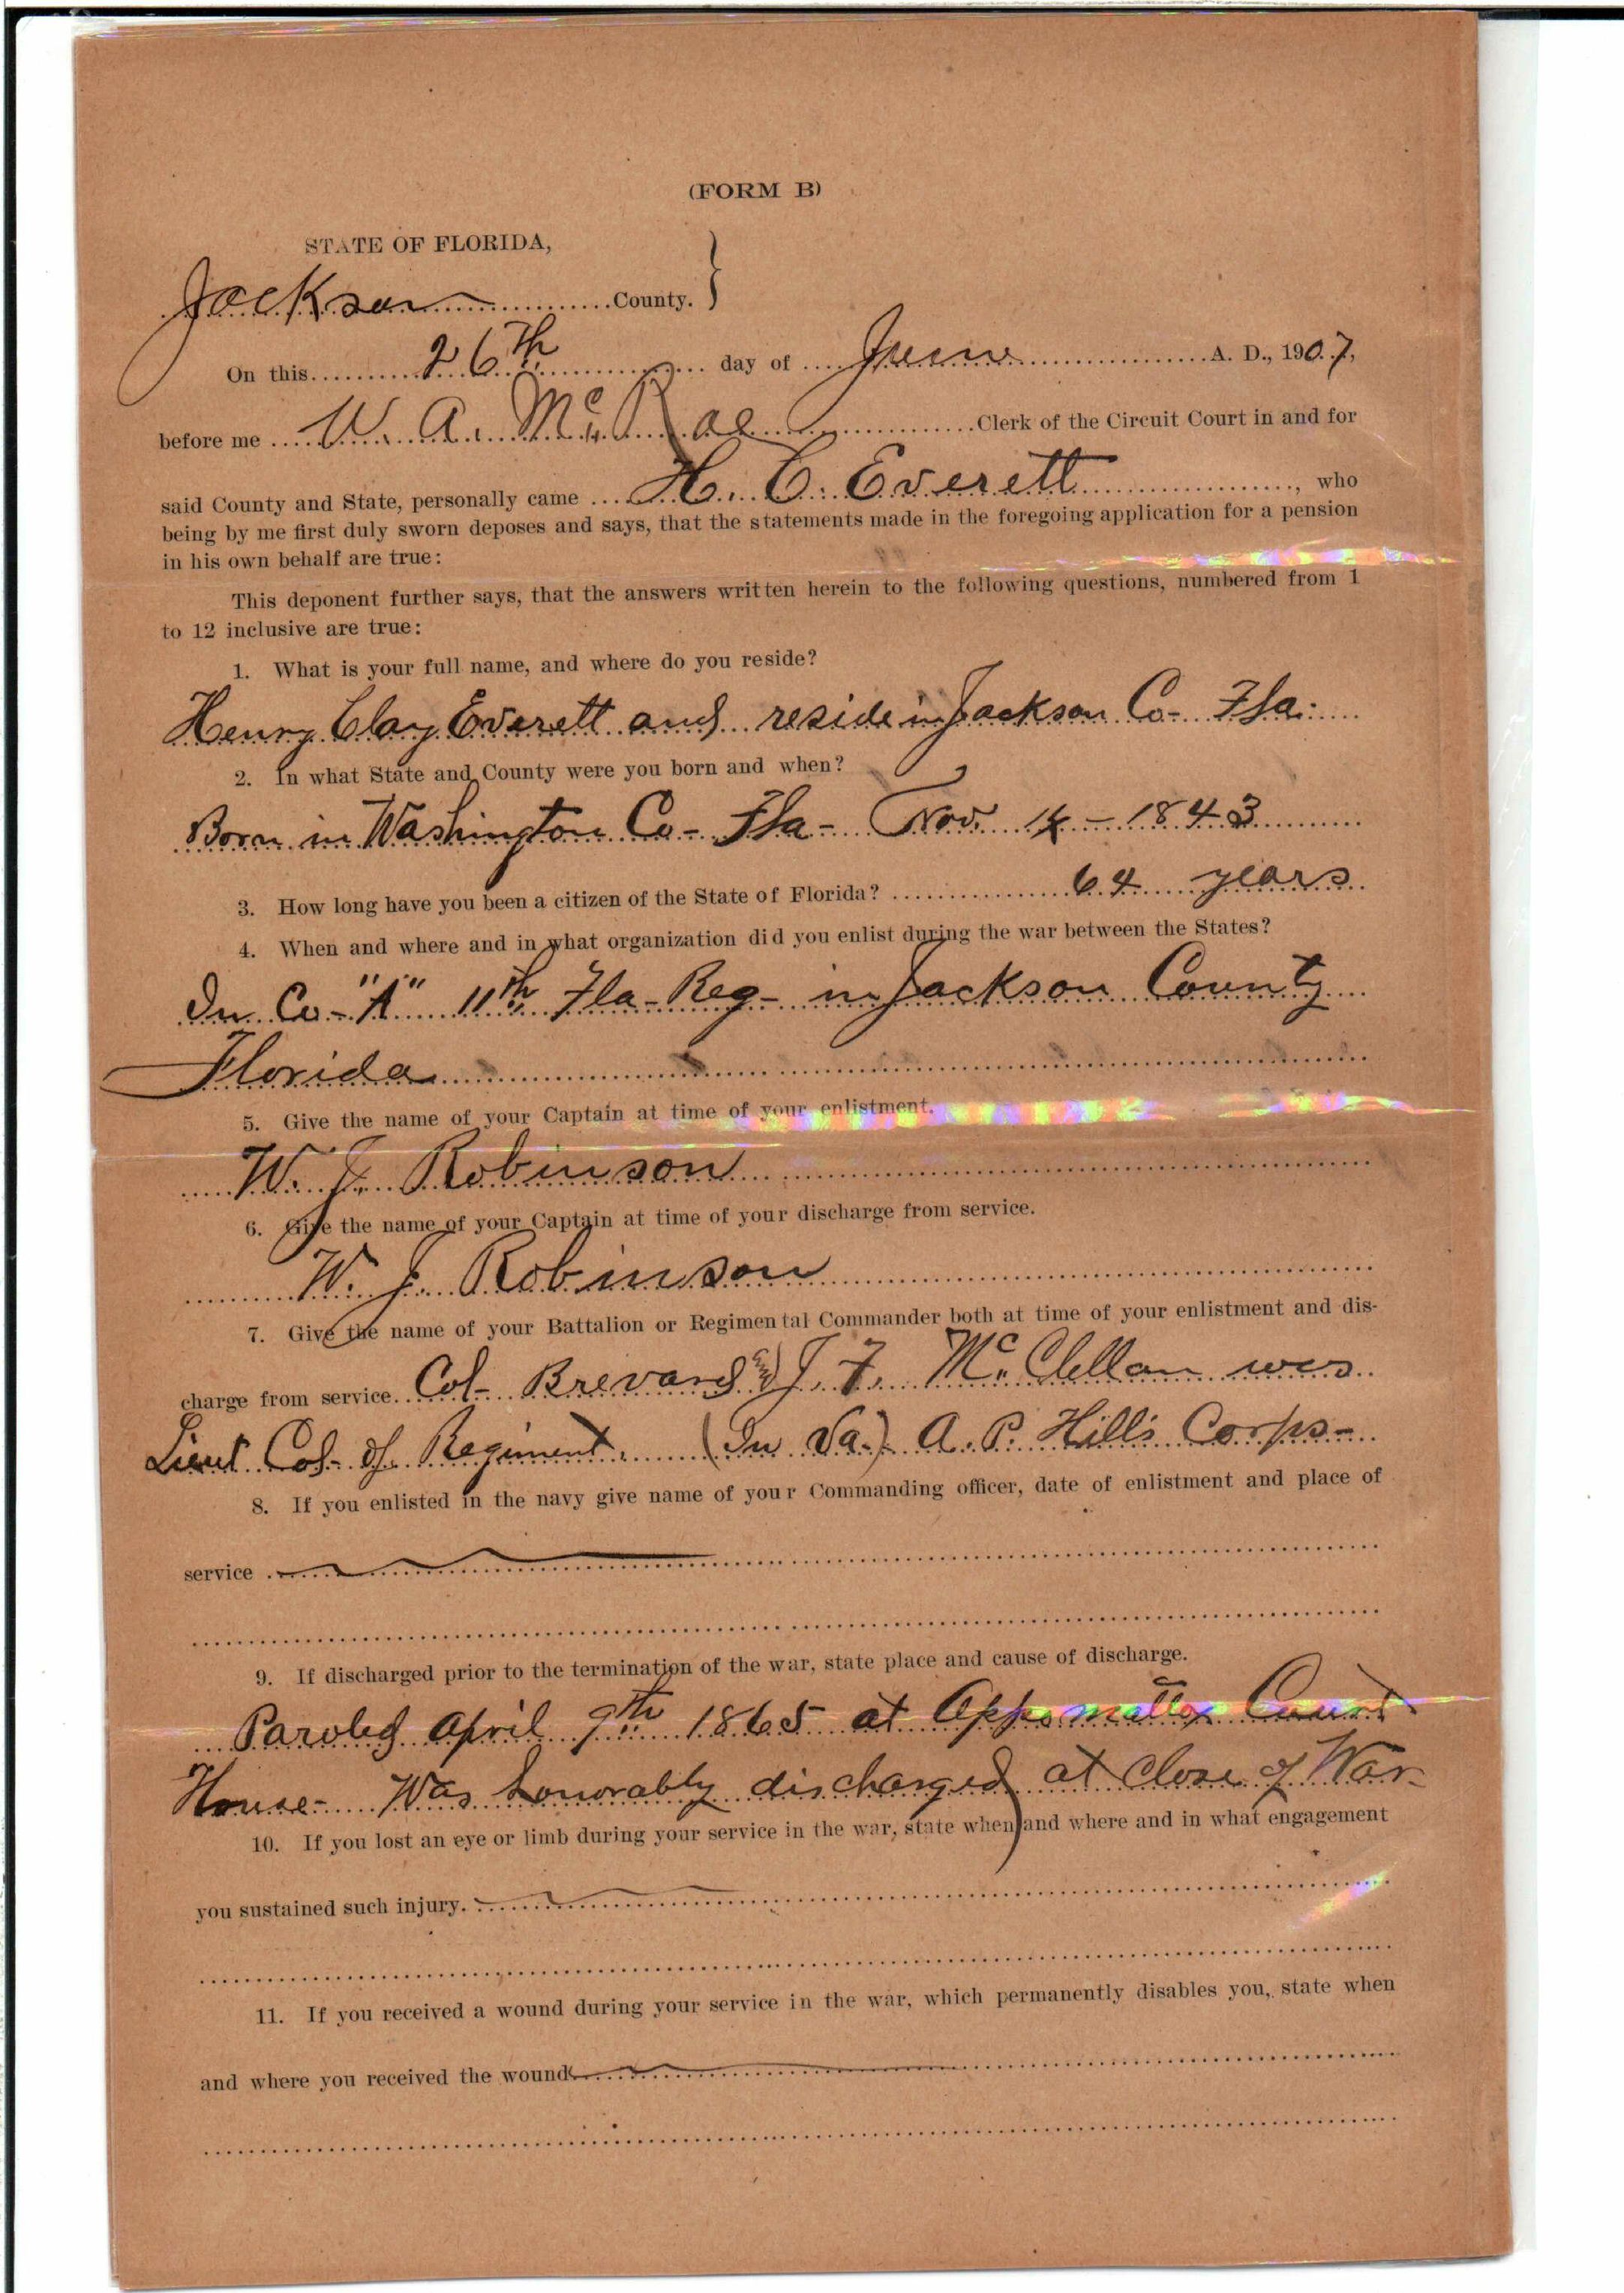 (FORM B)
STATE OF FLORIDA,
Jackson County.
On this 26th day of June A. D., 1907,
before me W. A. McRae Clerk of the Circuit Court in and for
said County and State, personally came H. C. Everett, who
being by me first duly sworn deposes and says, that the statements made in the foregoing application for a pension
in his own behalf are true:
This deponent further says, that the answers written herein to the following questions, numbered from 1
to 12 inclusive are true:
1. What is your full name, and where do you reside?
Henry Clay Everett and reside in Jackson Co- Fla.
2. In what State and County were you born and when?
Born in Washington Co- Fla- Nov. - 1843
3. How long have you been a citizen of the State of Florida? 64 years
4. When and where and in what organization did you enlist during the war between the States?
In Co- "A" 11th Fla- Reg- in Jackson County
Florida
5. Give the name of your Captain at time of your enlistment.
W. J. Robinson
6. Give the name of your Captain at time of your discharge from service.
W. J. Robinson
7. Give the name of your Battalion or Regimental Commander both at time of your enlistment and dis-
charge from service. Col- Brevard and J. F. McClellan was
Lieut Col- of Regiment. (In Va.) A. P. Hill's Corps-
8. If you enlisted in the navy give name of your Commanding officer, date of enlistment and place of
service
9. If discharged prior to the termination of the war, state place and cause of discharge.
Paroled April 9th 1865 at Appomattox Court
House- Was honorably discharged at Close of War-
10. If you lost an eye or limb during your service in the war, state when and where and in what engagement
you sustained such injury.
11. If you received a wound during your service in the war, which permanently disables you, state when
and where you received the wound